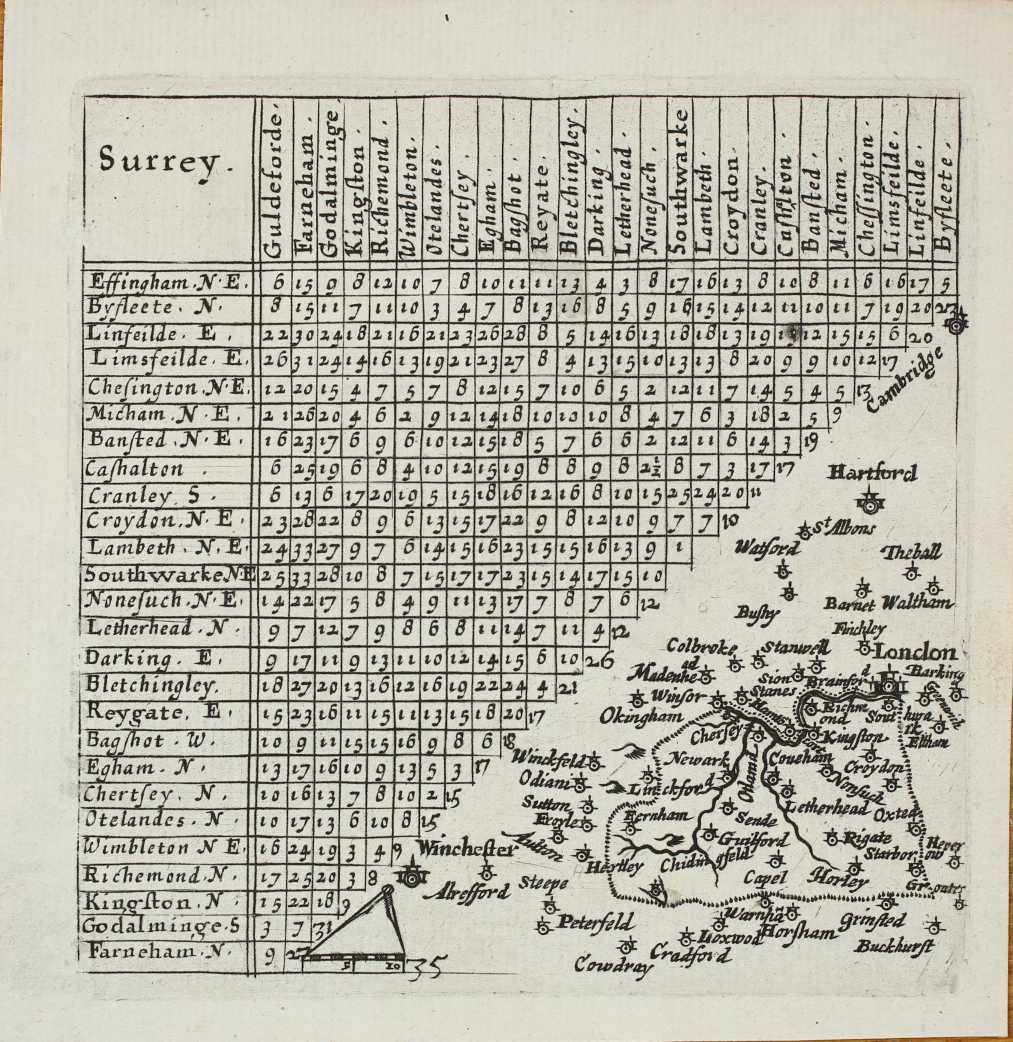 Surrey.
Guldeforde. Farneham. Godalminge Kingſton. Richemond. Wimbleton. Otelandes. Chertſey. Egham. Bagſhot. Reyate. Bletchingley. Darking. Letherhead Noneſuch. Southwarke Lambeth. Croydon. Cranley. Caſhlton Banſted. Micham. Cheſsington Limsfeilde. Linfeilde. Byfleete.
Effingham. N. E. 6 15 9 8 12 10 7 8 10 11 11 13 4 3 8 17 16 13 8 10 8 11 6 16 17 5
Byfleete. N. 8 15 11 7 11 10 3 4 7 8 13 16 8 5 9 16 15 14 12 11 10 11 7 19 20 27
Linfeilde. E. 22 30 24 18 21 16 21 23 26 28 8 5 14 16 13 18 18 13 19 12 15 15 6 20
Limsfeilde. E. 26 31 24 14 16 13 19 21 23 27 8 4 13 15 10 13 13 8 20 9 9 10 12 17
Cheſington. N. E. 12 20 15 4 7 5 7 8 12 15 7 10 6 5 2 12 11 7 14 5 4 5 13
Micham. N. E. 21 26 20 4 6 2 9 12 14 18 10 10 10 8 4 7 6 3 18 2 5 9
Banſted. N. E. 16 23 17 6 9 6 10 12 15 18 5 7 6 6 2 12 11 6 14 3 19
Caſhalton. 6 25 19 6 8 4 10 12 15 19 8 8 9 8 2½ 8 7 3 17 17
Cranley. S. 6 13 6 17 20 19 5 15 18 16 12 16 8 10 15 25 24 20 11
Croydon. N. E. 23 28 22 8 9 6 13 15 17 22 9 8 12 10 9 7 7 10
Lambeth. N. E. 24 33 27 9 7 6 14 15 16 23 15 15 16 13 9 1
Southwarke N E 25 33 28 10 8 7 15 17 17 23 15 14 17 15 10
Noneſuch. N. E. 14 22 17 5 8 4 9 11 13 17 7 8 7 6 12
Letherhead. N. 9 7 12 7 9 8 6 8 11 14 7 11 4 12
Darking. E. 9 17 11 9 13 11 10 12 14 15 6 10 26
Bletchingley. 18 27 20 13 16 12 16 19 22 24 4 21
Reygate. E. 15 23 16 11 15 11 13 15 18 20 17
Bagſhot. W. 10 9 11 15 15 16 9 8 6 18
Egham. N. 13 17 16 10 9 13 5 3 17
Chertſey. N. 10 16 13 7 8 10 2 15
Otelandes. N. 10 17 13 6 10 8 15
Wimbleton N E. 16 24 19 3 4 9
Richemond N. 17 25 20 3 8
Kingſton. N. 15 22 18 9
Godalminge. S 3 7 31
Farneham. N. 9 27
5 10
35
Cambridge
Hartford
St Albons
Watford
Theball
Barnet Waltham
Buſhy
Finchley
Colbroke Stanwell
London
Madenhead
Sion
Brainford
Barking
Winſor
Stanes
Okingham
Richmond
Southwark
Cherſey
Kingſton
Eltham
Winckfeld
Newark
Coueham
Croydon
Odiam
Linckford
Otland
Nonſuch
Sutton
Letherhead
Oxted
Froyle
Fernham
Sende
Sutton
Guilford
Rigate
Hever
Hertley
Chidingsfeld
Starborow
Winchester
Alrefford
Steepe
Capel
Horley
Peterfeld
Warnhā
Grinſted
Loxwod
Horſham
Buckhurſt
Cowdray
Cradford